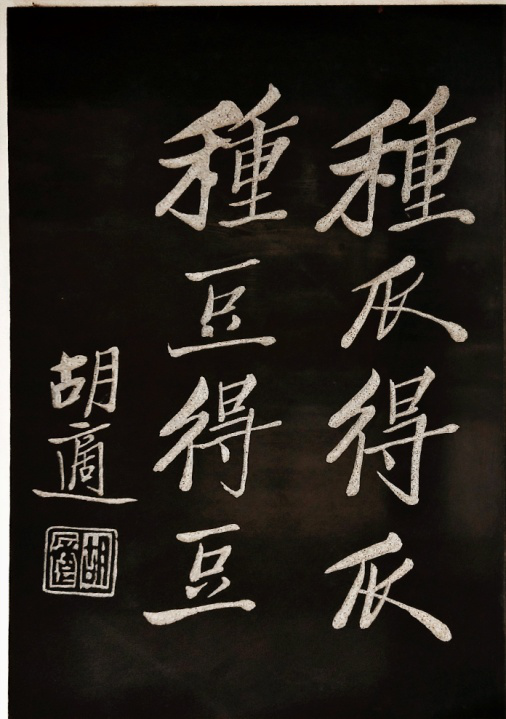 種瓜得瓜
種豆得豆
胡適
胡適